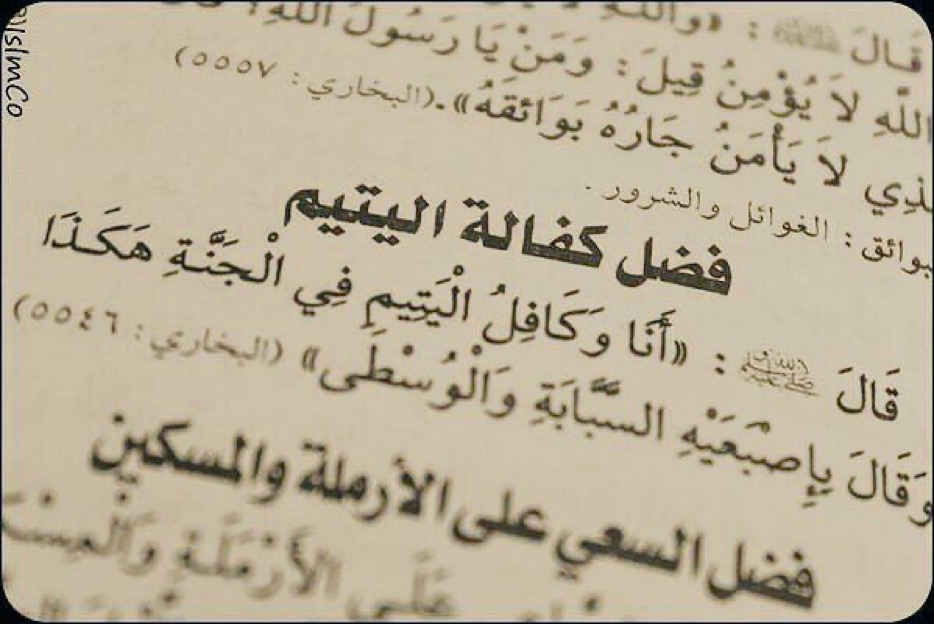 قَالَ ﷺ : «وَاللَّهِ لَا
اللَّهِ لَا يُؤْمِنُ قِيلَ: وَمَنْ يَا رَسُولَ اللَّهِ؟
لَا يَأْمَنُ جَارُهُ بَوَائِقَهُ».(البخاري: ٥٥٥٧)
بوائق: الغوائل والشرور.
فضل كفالة اليتيم
قَالَ ﷺ : «أَنَا وَكَافِلُ الْيَتِيمِ فِي الْجَنَّةِ هَكَذَا
وَقَالَ بِإِصْبَعَيْهِ السَّبَّابَةِ وَالْوُسْطَى» (البخاري: ٥٥٤٦)
فضل السعي على الأرملة والمسكين
عَلَى الأَرْمَلَةِ
@IslmCo